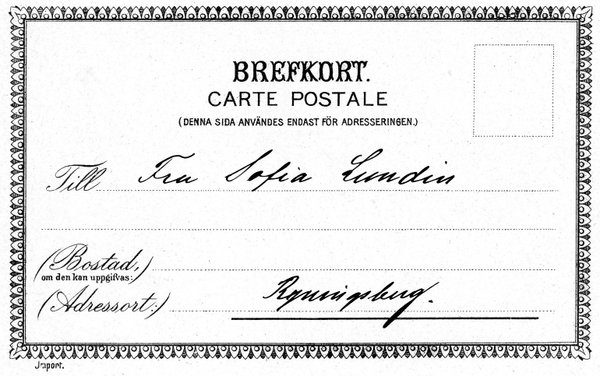 BREFKORT.
CARTE POSTALE
(DENNA SIDA ANVÄNDES ENDAST FÖR ADRESSERINGEN.)
Till Fru Sofia Lundin
(Bostad,)
om den kan uppgifvas:
(Adressort:) Ryningsberg.
Import.